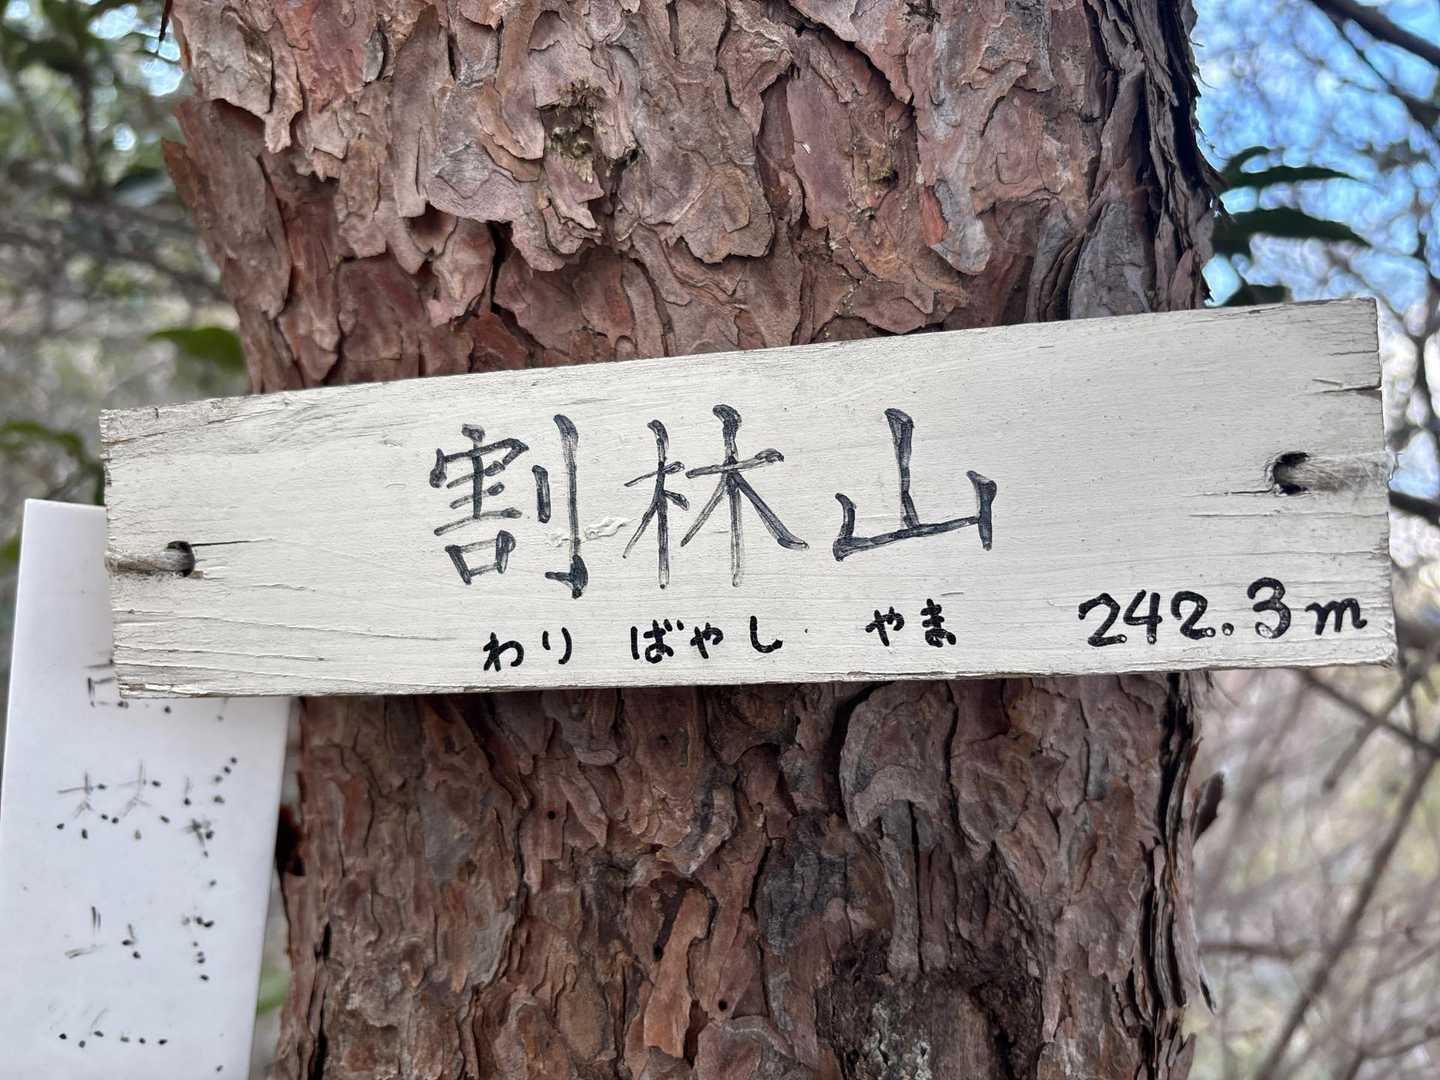 割林山
わり ばやし やま 242.3m
林
山